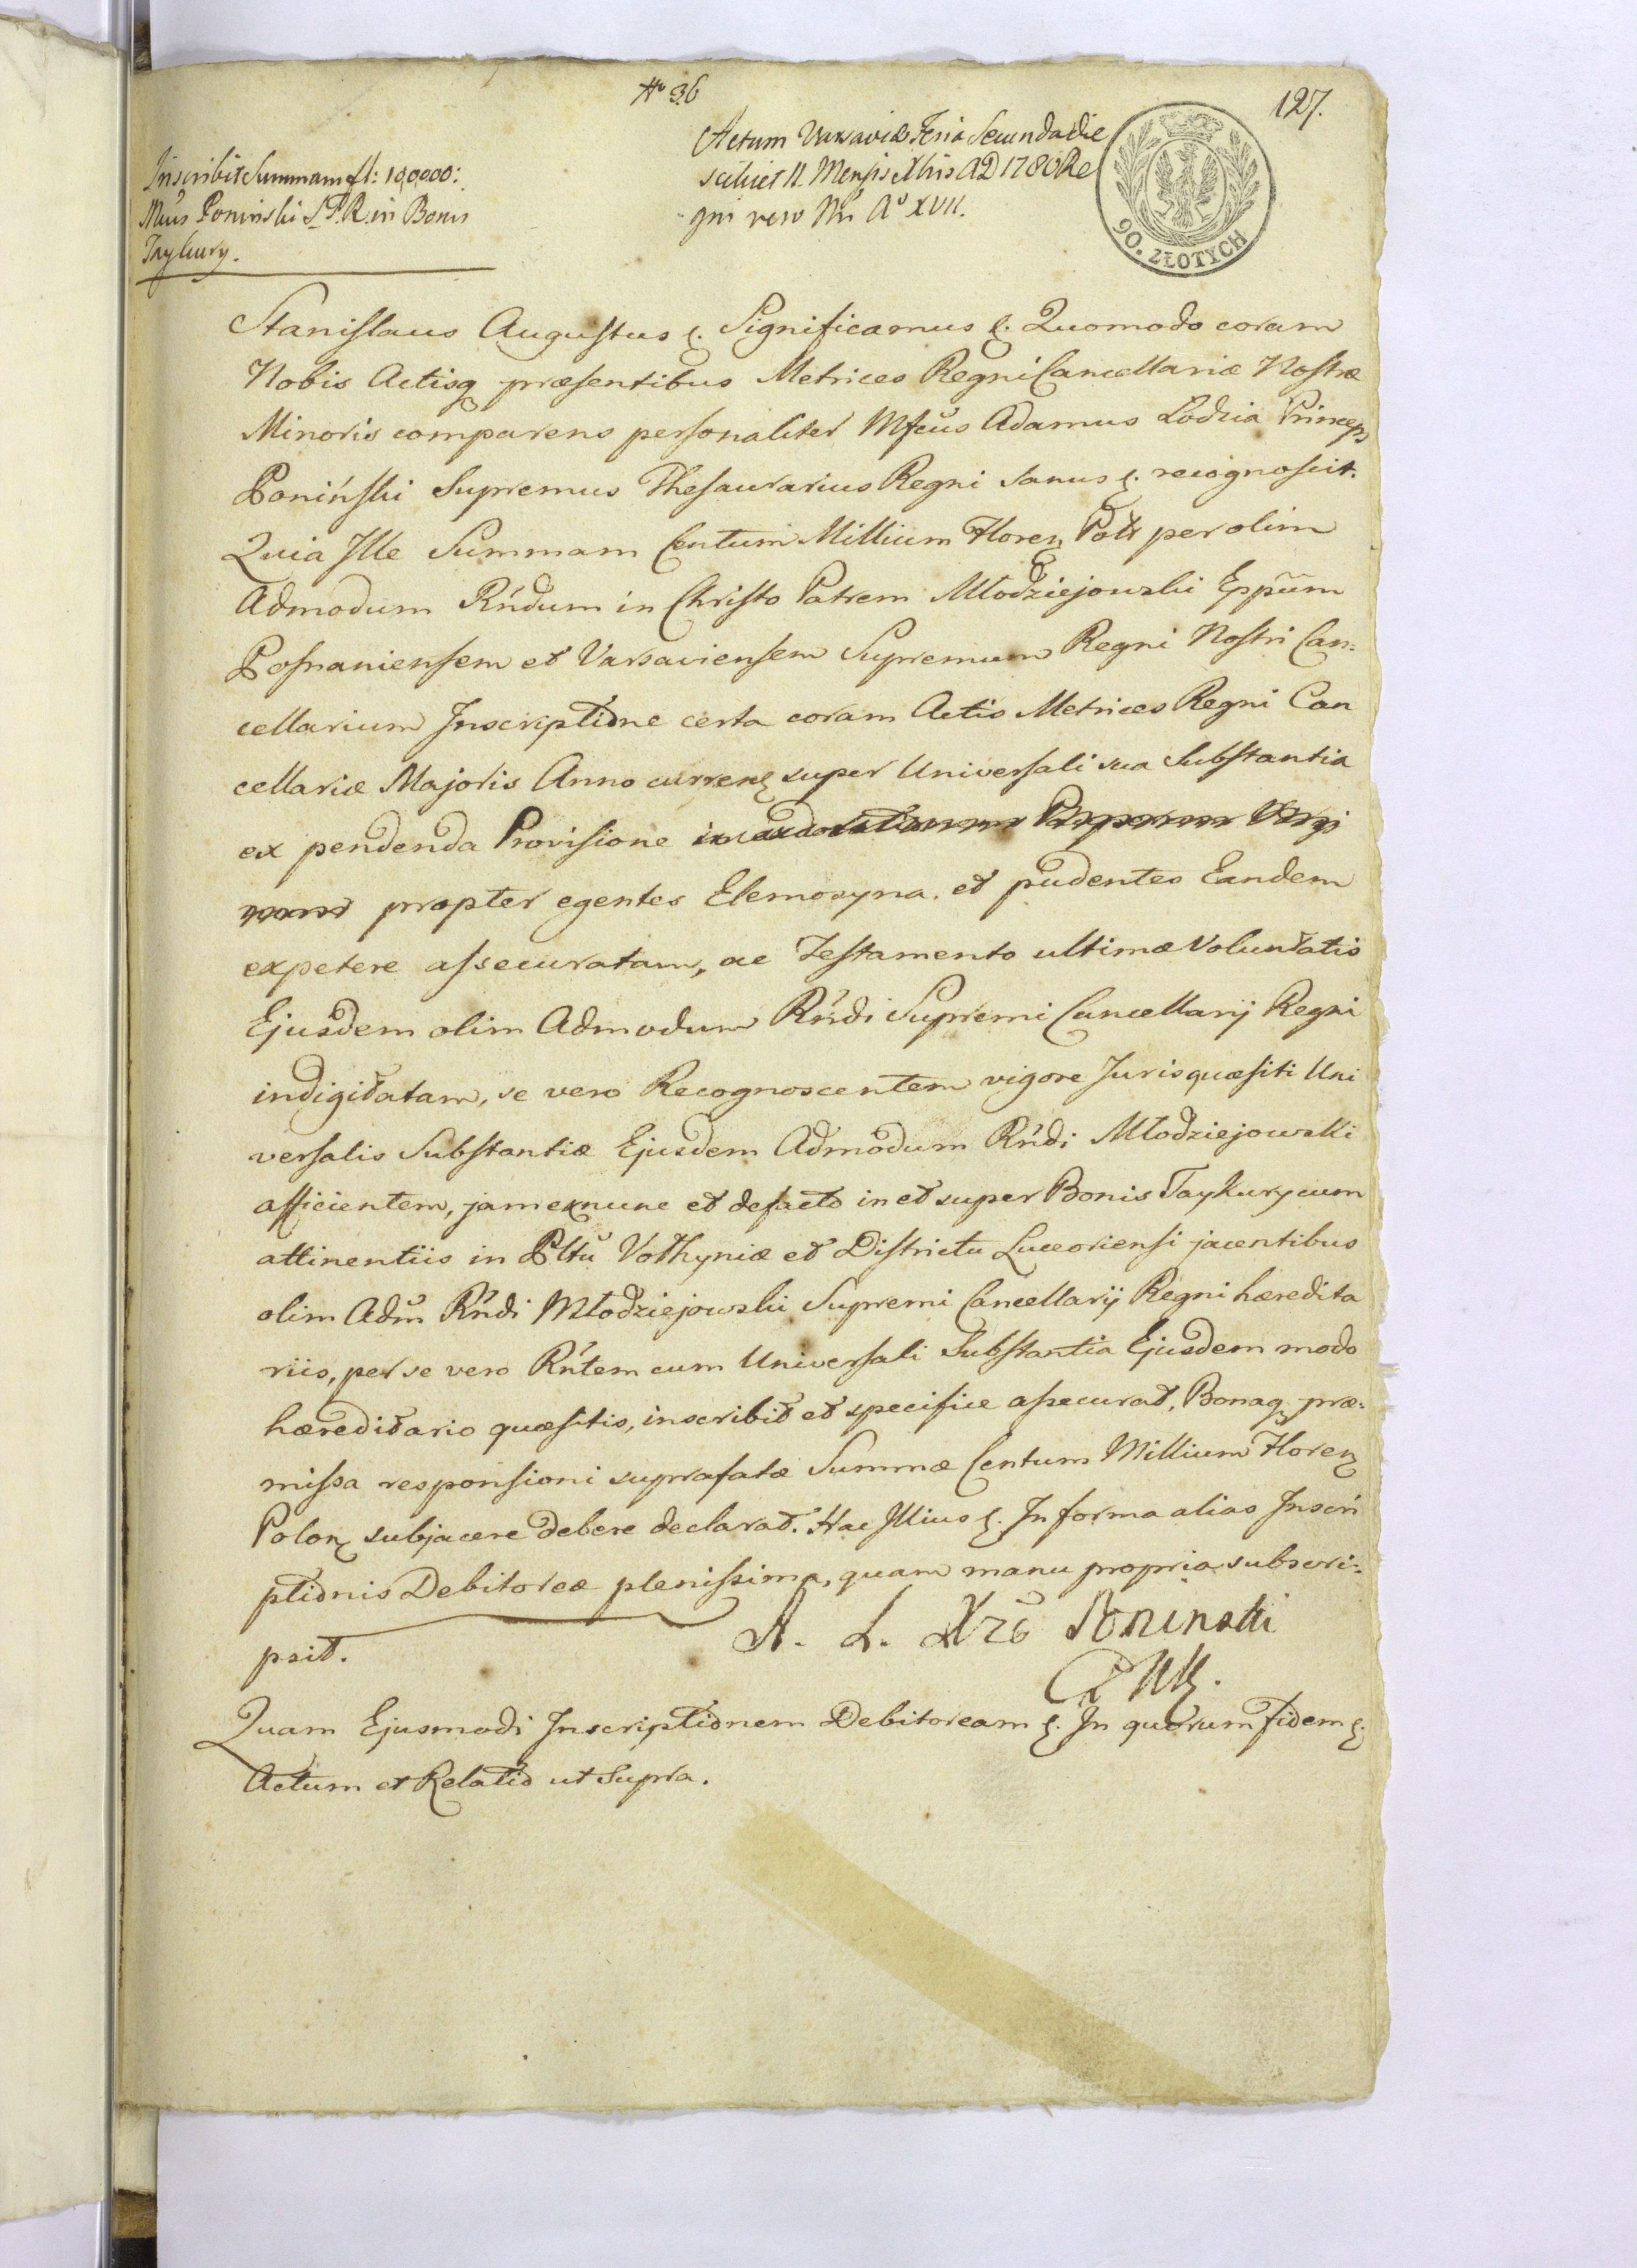 No 36
127.
Actum Varsaviæ Feria Secunda die
scilicet 11. Mensis Xbris AD 1780 Re
gni vero Nri Ao XVII.
90. ZŁOTYCH
Inscribit Summam fl: 100000:
Mcus Poninski S.T.R. in Bonis
Taykury.
Stanislaus Augustus &. Significamus &. Quomodo coram
Nobis Actisq præsentibus Metrices Regni Cancellariæ Nostræ
Minoris comparens personaliter Mfcus Adamus Lodzia Princeps
Poniński Supremus Thesaurarius Regni sanus &. recognoscit.
Quia Ille Summam Centum Millium Floren Pol per olim
Admodum Rndum in Christo Patrem Młodziejowski Eppum
Posnaniensem et Varsaviensem Supremum Regni Nostri Can:
cellarium Inscriptione certa coram Actis Metrices Regni Can
cellariæ Majoris Anno curren super Universali sua Substantia
ex pendenda Provisione
propter egentes Elemosyna. et pudentes Eandem
expetere assecuratam, ac Testamento ultimæ Voluntatis
Ejusdem olim Admodum Rndi Supremi Cancellarij Regni
indigitatam, se vero Recognoscentem vigore Juris quæsiti Uni
versalis Substantiæ Ejusdem Admodum Rndi Młodziejowski
afficientem, jam exnunc et defacto in et super Bonis Taykury cum
attinentiis in Pltu Volhyniæ et Districtu Luceoriensi jacentibus
olim Adm Rndi Młodziejowski Supremi Cancellarij Regni hæredita
riis, per se vero Rntem cum Universali Substantia Ejusdem modo
hæreditario quæsitis, inscribit et specifice assecurat, Bonaq præ:
missa responsioni suprafatæ Summæ Centum Millium Floren
Polon subjacere debere declarat. Hac Illius &. In forma alias Inscri
ptionis Debitoreæ plenissima, quam manu propria subscri:
psit.
A. L. Xże Poninski
Quam Ejusmodi Inscriptionem Debitoream &. In quorum fidem &.
Actum et Relatio ut Supra.